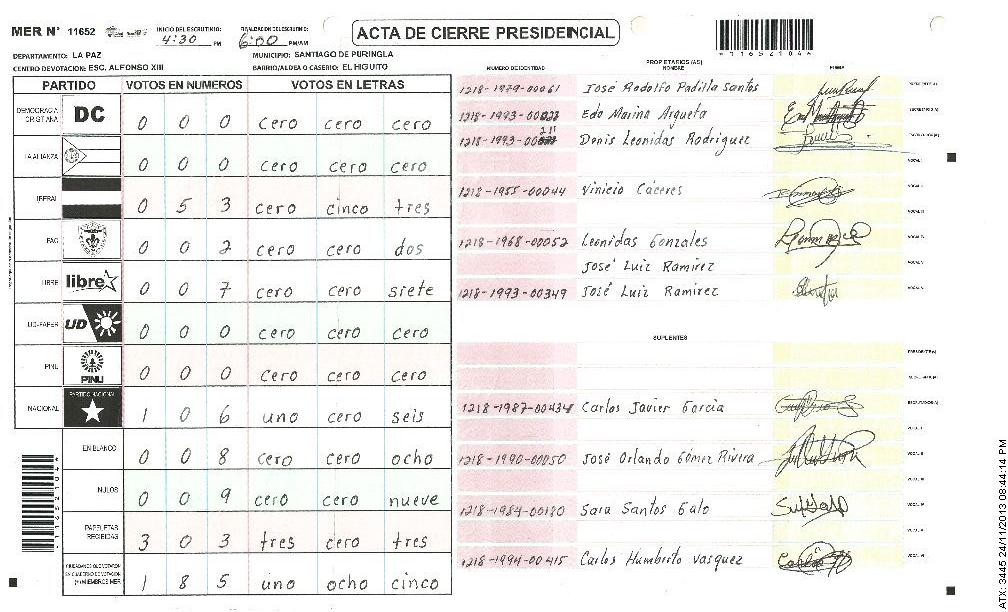 MER N° 11652
INICIO DEL ESCRUTINIO:
4:30 PM
FINALIZACION DEL ESCRUTINIO:
6:00 PM/AM
ACTA DE CIERRE PRESIDENCIAL
11652104
DEPARTAMENTO: LA PAZ
MUNICIPIO: SANTIAGO DE PURINGLA
CENTRO DE VOTACION: ESC. ALFONSO XIII
BARRIO/ALDEA O CASERIO: EL HIGUITO
PARTIDO VOTOS EN NUMEROS VOTOS EN LETRAS
DEMOCRACIA CRISTIANA DC 0 0 0 cero cero cero
LA ALIANZA 0 0 0 cero cero cero
LIBERAL 0 5 3 cero cinco tres
PAC 0 0 2 cero cero dos
LIBRE libre 0 0 7 cero cero siete
UD-FAPER UD 0 0 0 cero cero cero
PINU PINU 0 0 0 cero cero cero
NACIONAL PARTIDO NACIONAL 1 0 6 uno cero seis
EN BLANCO 0 0 8 cero cero ocho
NULOS 0 0 9 cero cero nueve
PAPELETAS RECIBIDAS 3 0 3 tres cero tres
CIUDADANOS QUE VOTARON EN CUADERNO DE VOTACION (+) MIEMBROS MER 1 8 5 uno ocho cinco
PROPIETARIOS (AS)
NUMERO DE IDENTIDAD NOMBRE FIRMA
1218-1979-00061 José Rodolfo Padilla Santos PRESIDENTE (A)
1218-1993- Edo Marina Argueta SECRETARIO (A)
1218-1993- Donis Leonidas Rodriguez ESCRUTADOR (A)
VOCAL I
1218-1955-00044 Vinicio Cáceres VOCAL II
VOCAL III
1218-1968-00052 Leonidas Gonzales VOCAL IV
José Luiz Ramirez VOCAL V
1218-1993-00349 José Luiz Ramirez VOCAL VI
SUPLENTES
PRESIDENTE (A)
SECRETARIO (A)
1218-1987-00434 Carlos Javier Garcia ESCRUTADOR (A)
VOCAL I
1218-1990-00050 José Orlando Gómez Rivera VOCAL II
VOCAL III
1218-1984-00180 Sara Santos Galo VOCAL IV
VOCAL V
1218-1994-00415 Carlos Humbrito Vasquez VOCAL VI
11652104
ATX: 3445 24/11/2013 08:44:14 PM